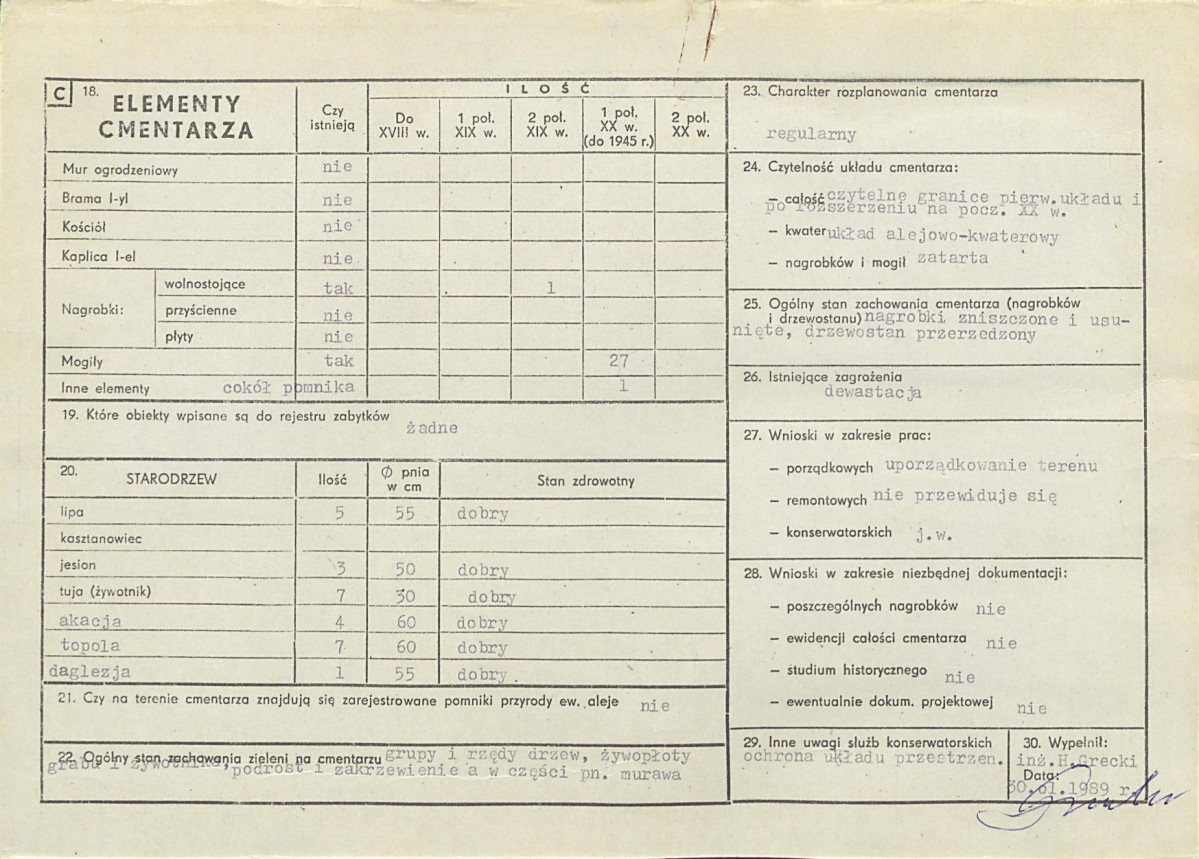 C 18. ELEMENTY CMENTARZA
Czy istnieją
ILOŚĆ
Do XVIII w.
1 poł. XIX w.
2 poł. XIX w.
1 poł. XX w. (do 1945 r.)
2 poł. XX w.
Mur ogrodzeniowy nie
Brama I-yl nie
Kościół nie
Kaplica I-el nie
Nagrobki: wolnostojące tak 1
przyścienne nie
płyty nie
Mogiły tak 27
Inne elementy cokół pomnika 1
19. Które obiekty wpisane są do rejestru zabytków
żadne
20. STARODRZEW Ilość Ø pnia w cm Stan zdrowotny
lipa 5 55 dobry
kasztanowiec
jesion 3 50 dobry
tuja (żywotnik) 7 30 dobry
akacja 4 60 dobry
topola 7 60 dobry
daglezja 1 55 dobry.
21. Czy na terenie cmentarza znajdują się zarejestrowane pomniki przyrody ew. aleje nie
22. Ogólny stan zachowania zieleni na cmentarzu grupy i rzędy drzew, żywopłoty
grabu i żywotnika, podrost i zakrzewienie a w części pn. murawa
23. Charakter rozplanowania cmentarza
regularny
24. Czytelność układu cmentarza:
– całość czytelne granice pierw.układu i
po rozszerzeniu na pocz. XX w.
– kwater układ alejowo-kwaterowy
– nagrobków i mogił zatarta
25. Ogólny stan zachowania cmentarza (nagrobków
i drzewostanu) nagrobki zniszczone i usu-
nięte, drzewostan przerzedzony
26. Istniejące zagrożenia
dewastacja
27. Wnioski w zakresie prac:
– porządkowych uporządkowanie terenu
– remontowych nie przewiduje się
– konserwatorskich j.w.
28. Wnioski w zakresie niezbędnej dokumentacji:
– poszczególnych nagrobków nie
– ewidencji całości cmentarza nie
– studium historycznego nie
– ewentualnie dokum. projektowej nie
29. Inne uwagi służb konserwatorskich
ochrona układu przestrzen.
30. Wypełnił:
inż.H.Grecki
Data:
30.01.1989 r.